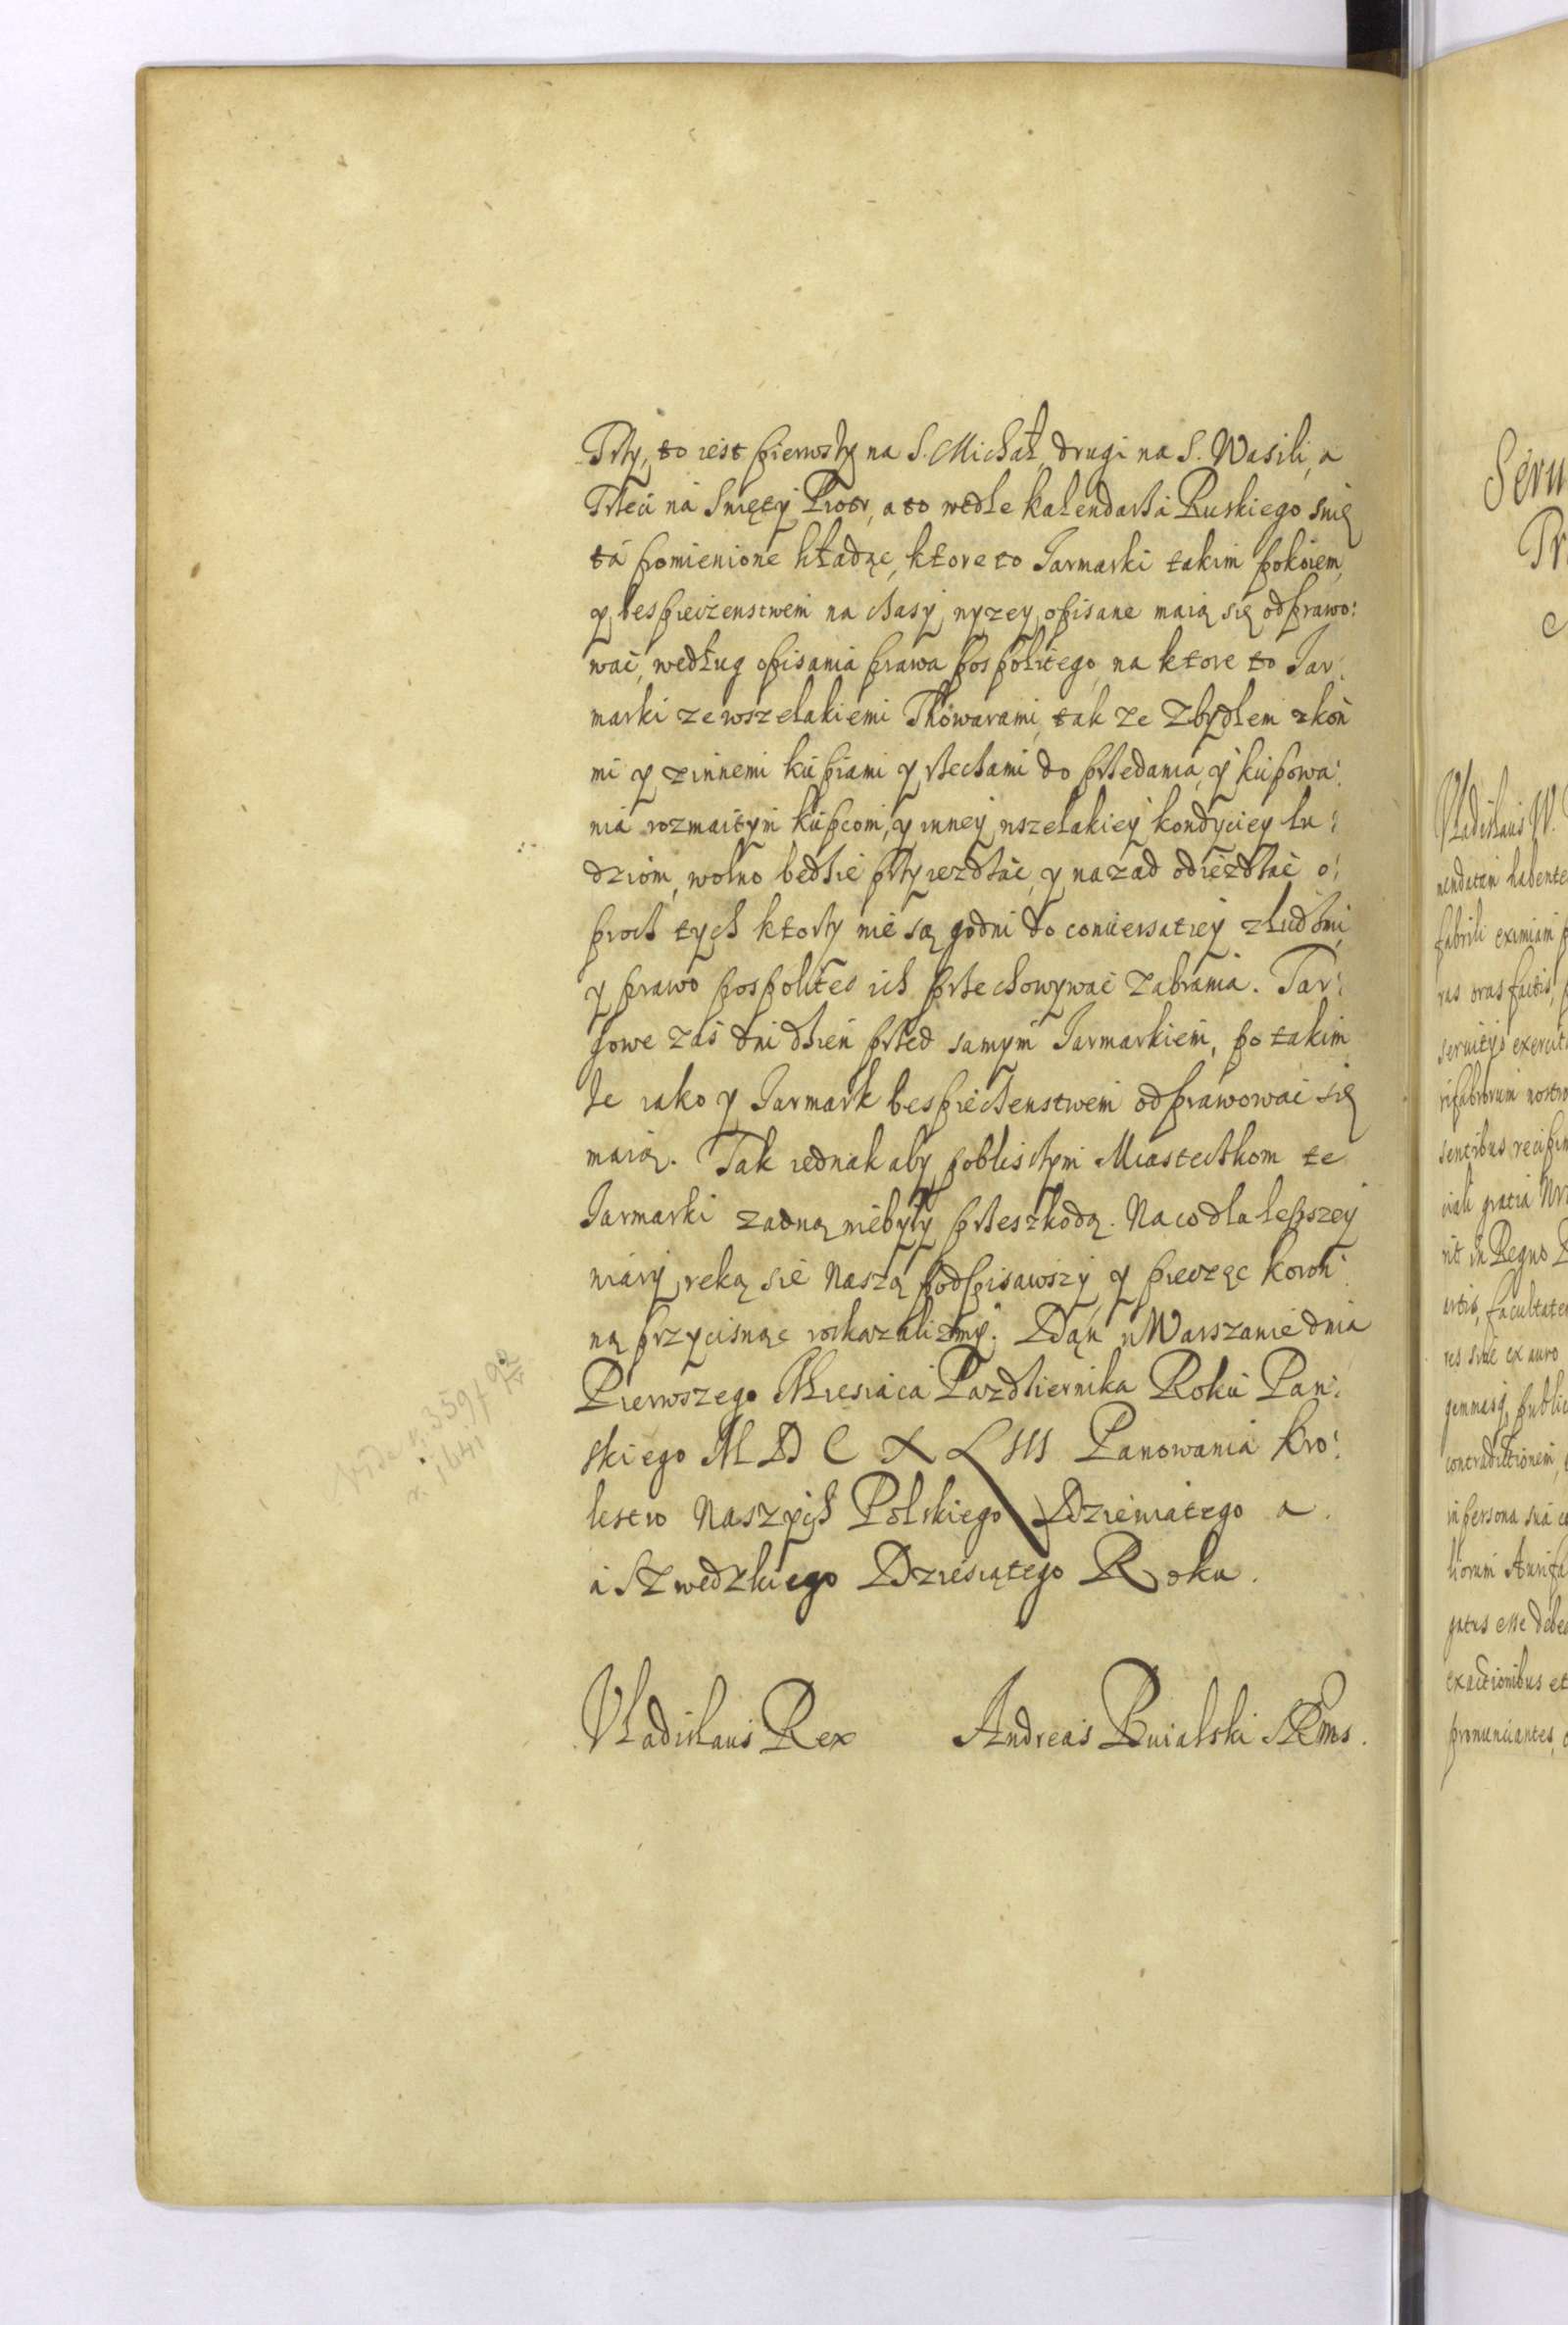 Trzy, to iest pierwszy na S. Michał, drugi na S. Wasili, a
Trzeci na Swięty Piotr, a to wedle kalendarza Ruskiego swię
ta pomienione kładąc, ktore to Jarmarki takim pokoiem,
y bespieczenstwem na czasy wyzey opisane maią się odprawo:
wać, według opisania prawa pospolitego, na ktore to Jar:
marki ze wszelakiemi Thowarami, tak ze Zbydłem zkoń
mi y zinnemi kupiami y rzeczami do przedania, y kupowa:
nia rozmaitym kupcom, y inney wszelakiey kondyciey lu:
dziom, wolno bedzie przyiezdzać, y nazad odiezdzać o:
procz tych ktorzy nie są godni do conuersatiey zludzmi,
y prawo pospolites ich przechowywać zabrania. Tar:
gowe zaś dni dzień przed samym Jarmarkiem, po takim
ze iako y Jarmark bespieczenstwem odprawować się
maią. Tak iednak aby pobliszym Miasteczkom te
Jarmarki zadną niebyły przeszkodą. Na co dla lepszey
wiary, ręką się Naszą podpisawszy, y pieczęc koron:
ną przycisnąc roskazalizmy. Dąn w Warszawie dnia
Pierwszego Miesiąca Pazdziernika Roku Pan:
skiego M D C X L III Panowania kro:
lestw Naszych Polskiego Dziewiątego a
a Szwedzkiego Dziesiątego Roku.
Vladislaus Rex Andreas Buialski SRMs.
vide n. 359 f 92
r. 1641
Seru
Vladislaus IV.
mendatam habente
fabrili eximiam
ras oras factis,
seruitys exercit
rifabrorum nostro
sentibus recipim
ciali gratia Nra
rit in Regno
artis, facultate
res siue ex auro
gemmasq, public
contradictionem,
in persona sua
liorum Aurifa
gatus esse debe
exactionibus et
pronunciantes,